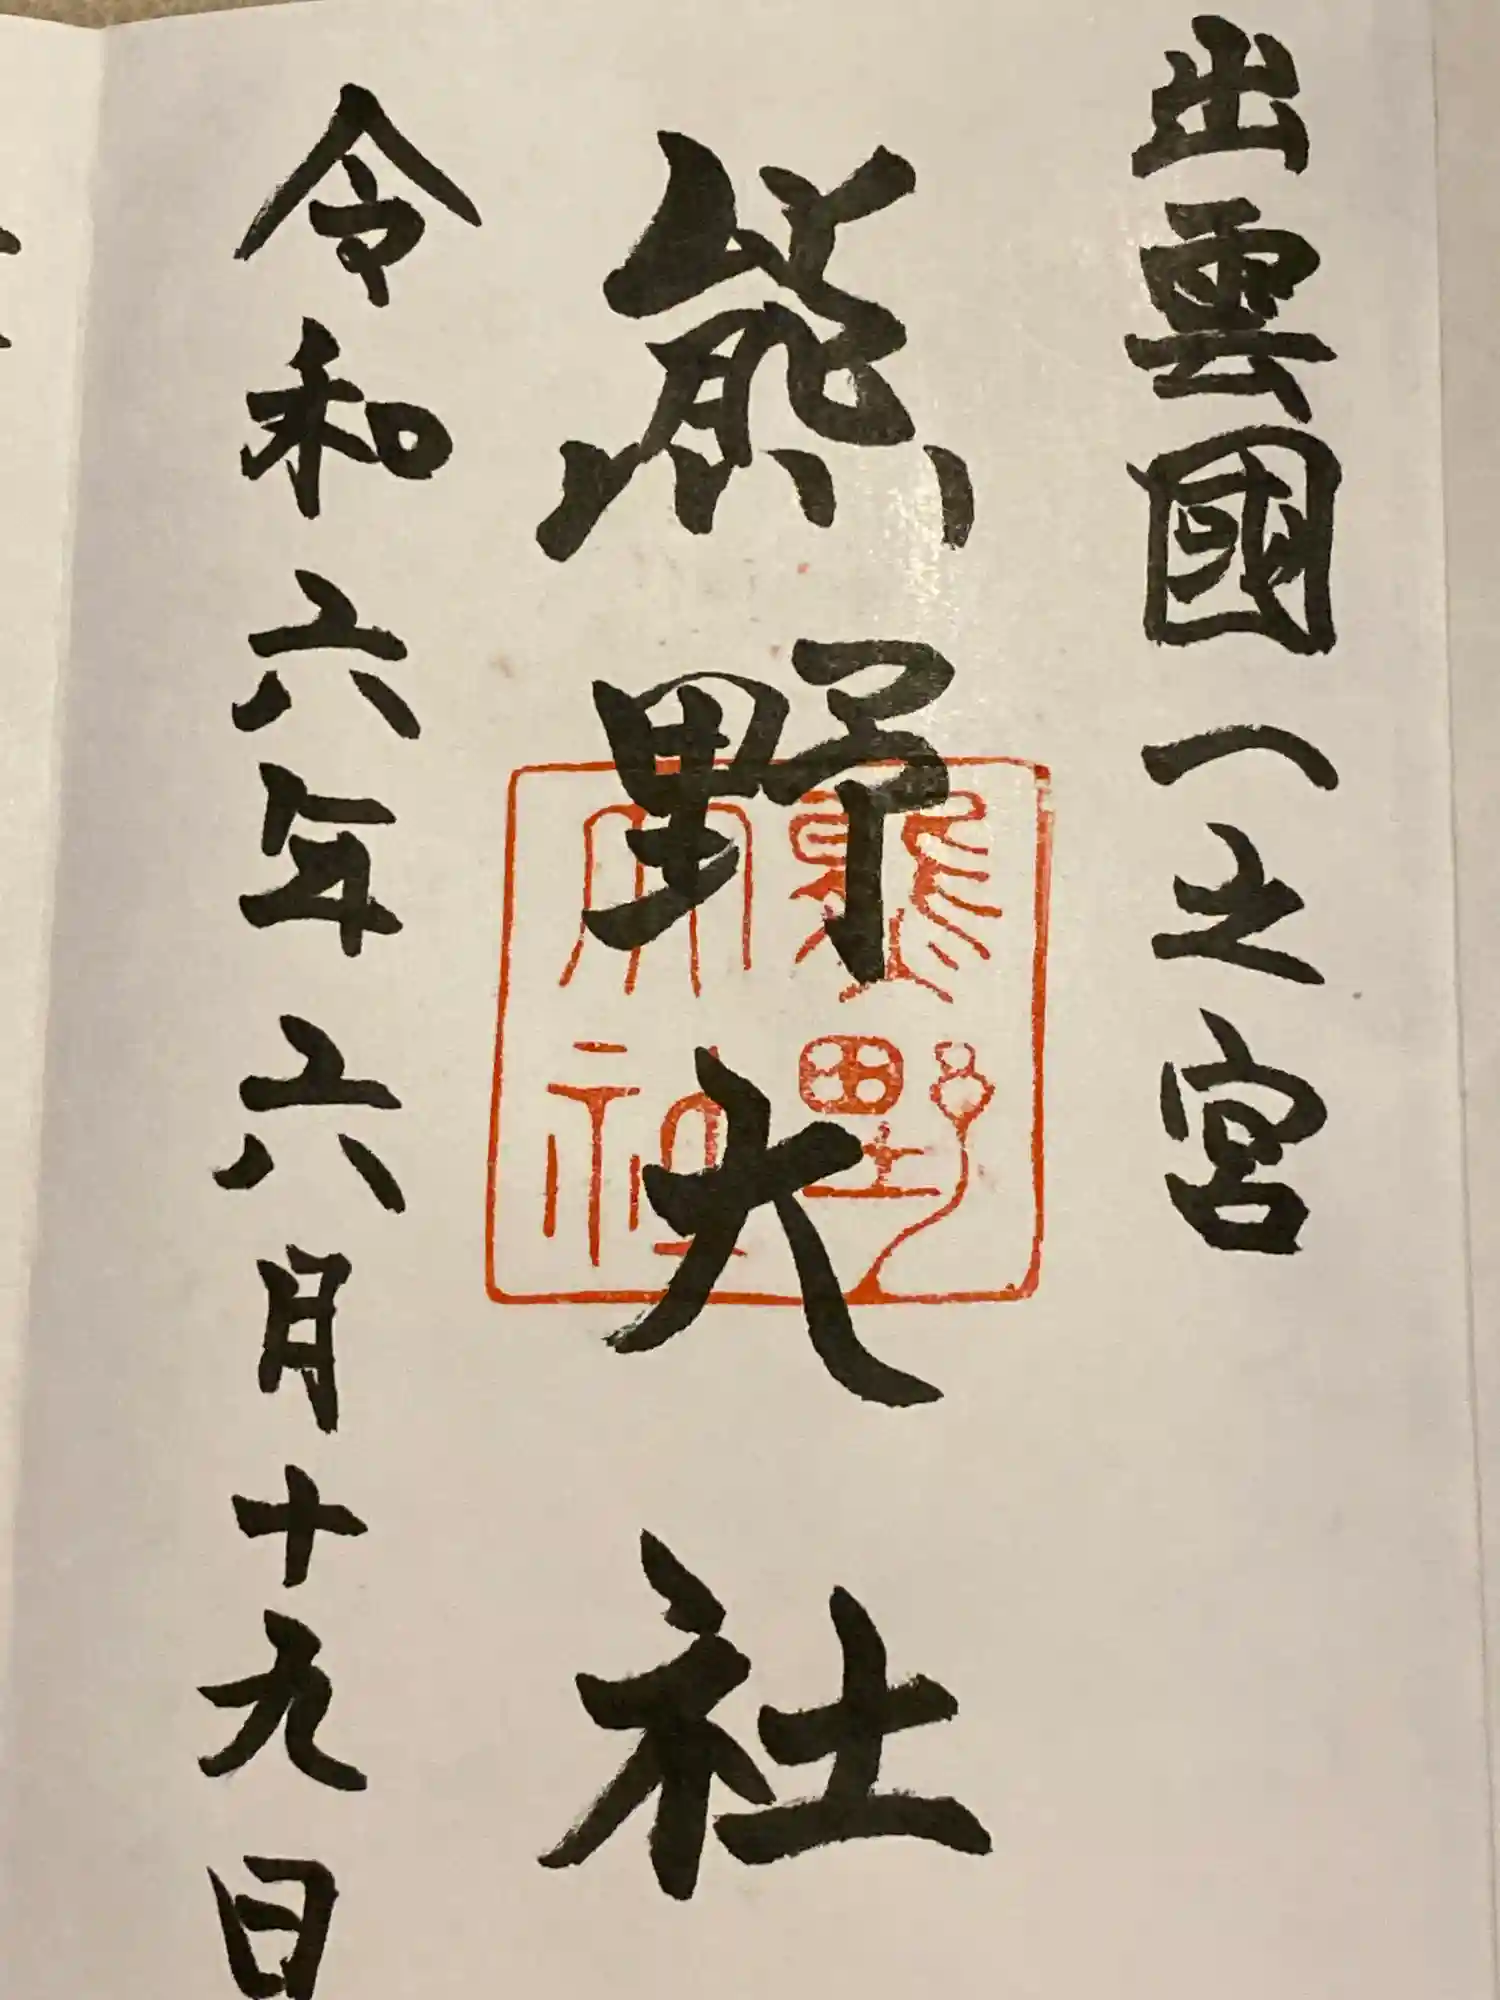 出雲國一之宮
熊野大社
熊野大社
令和六年六月十九日